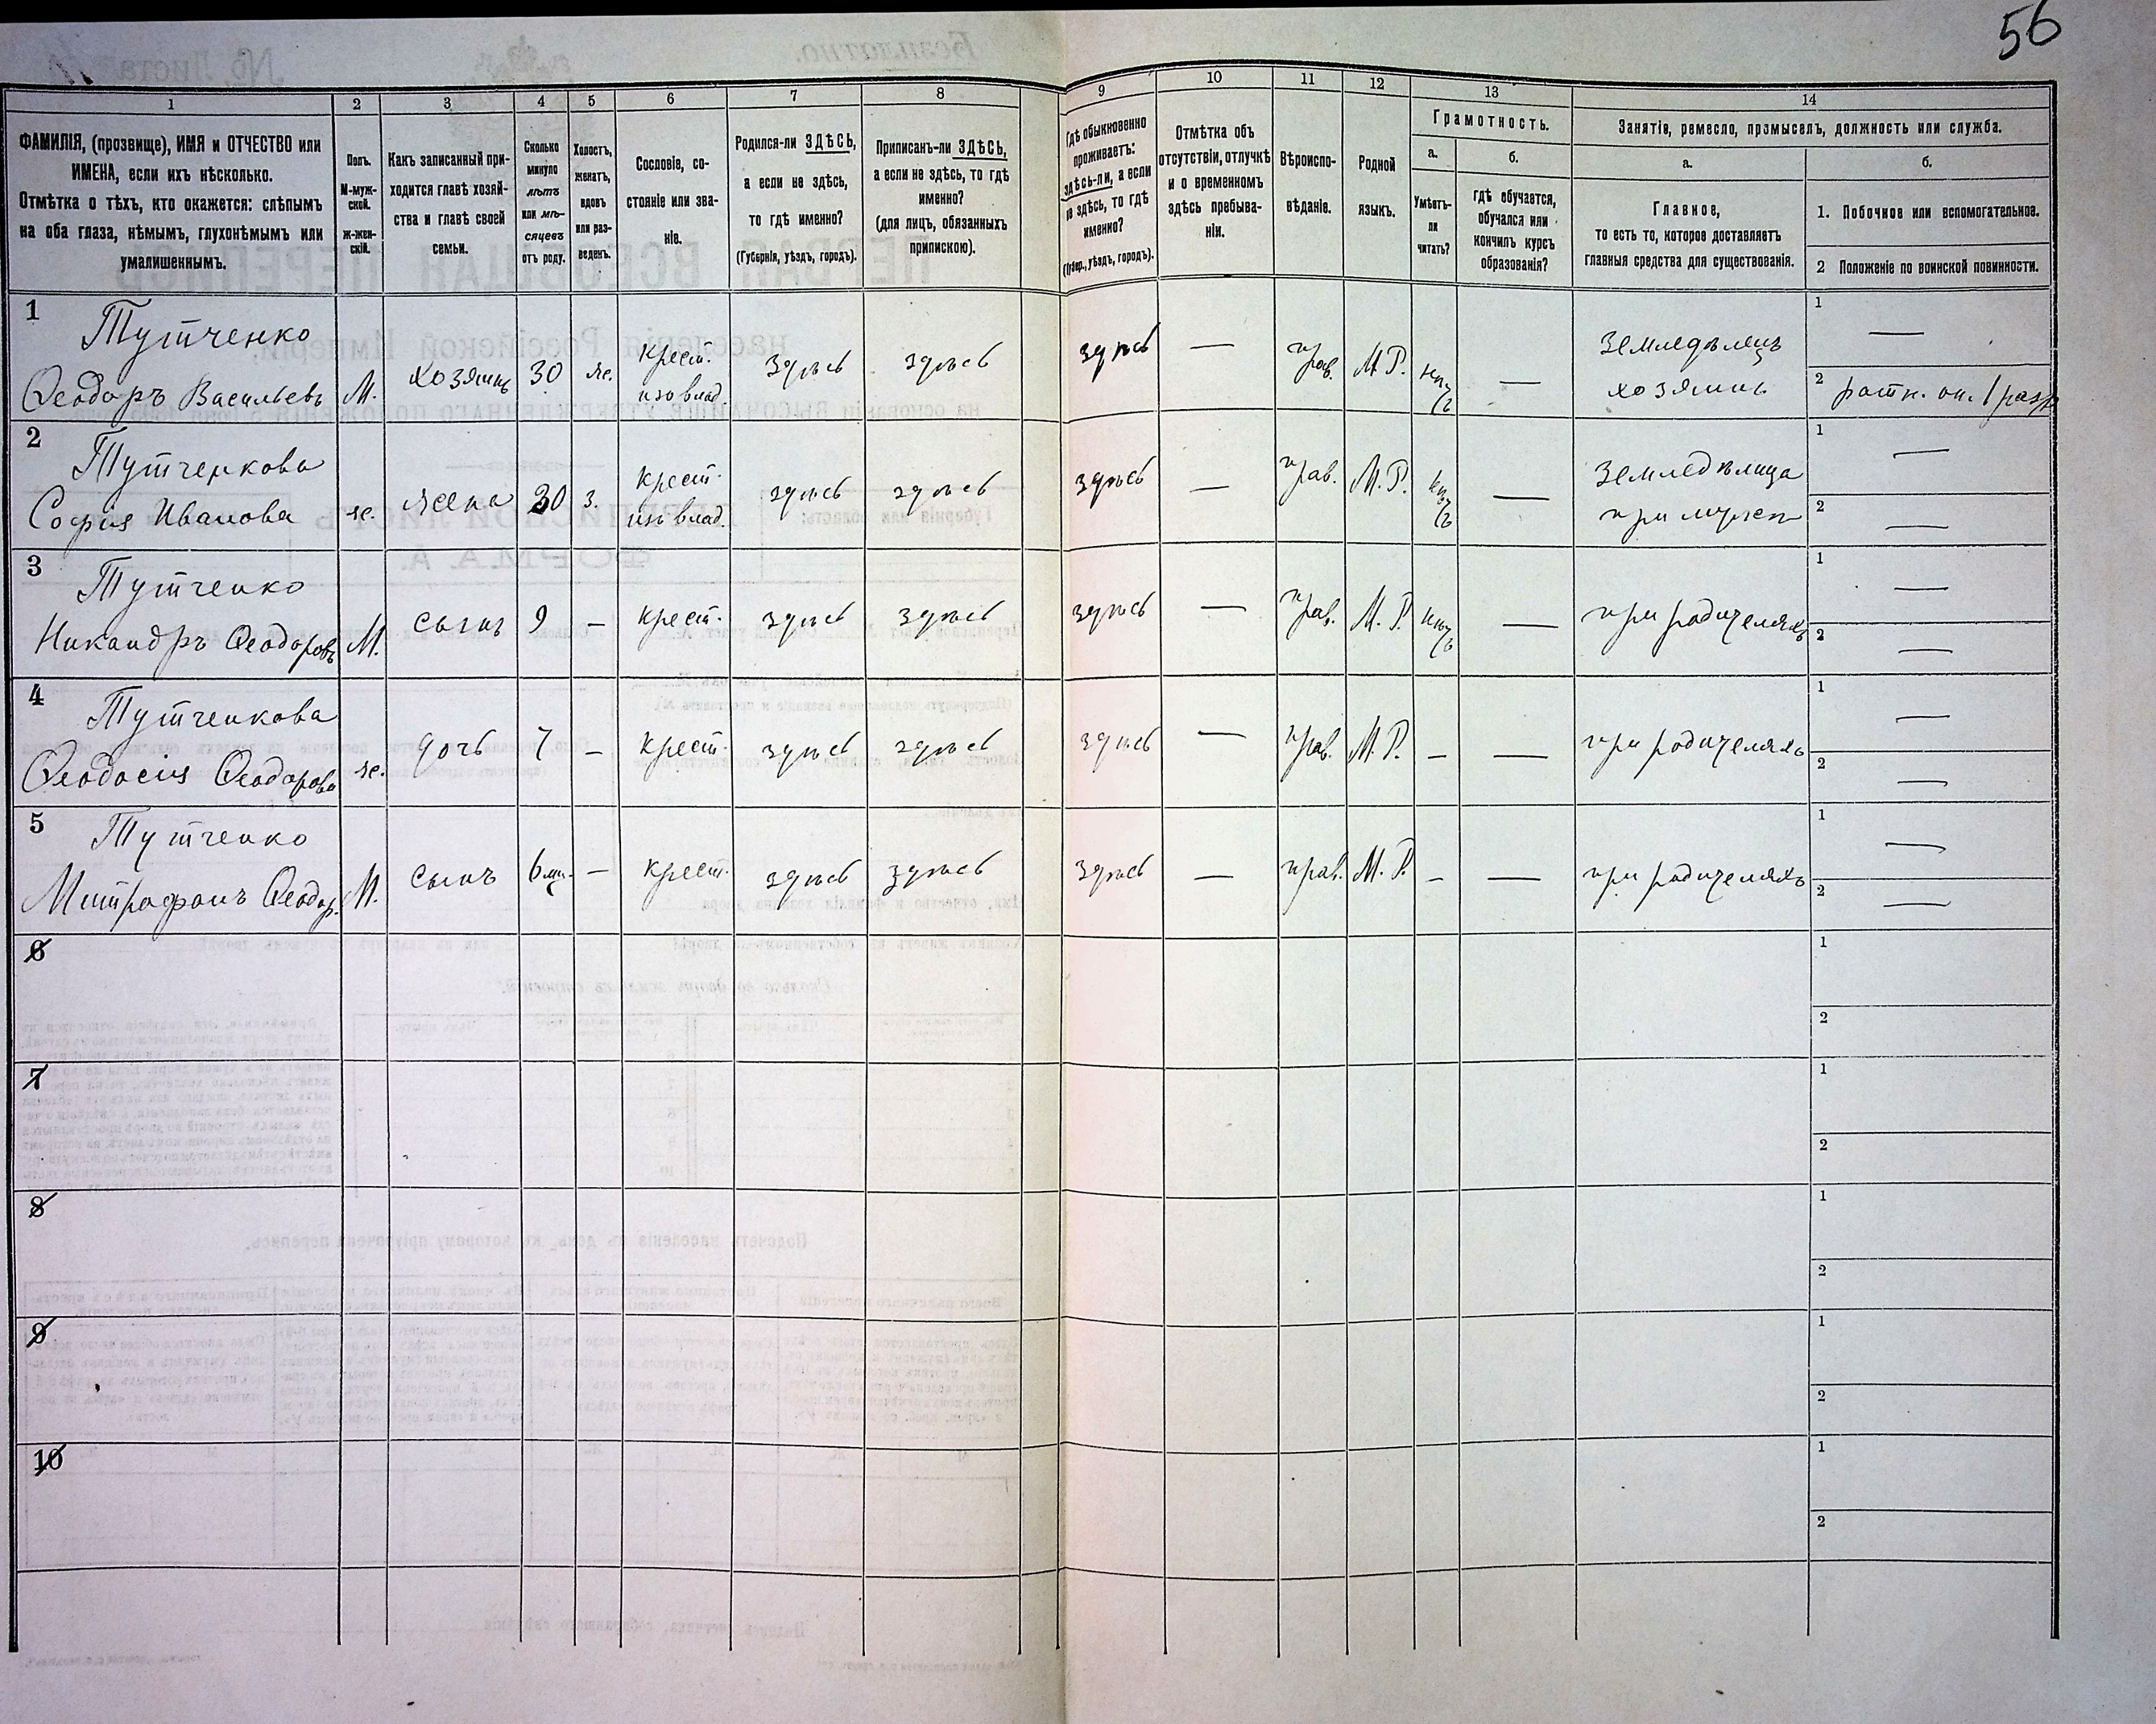 56
1 2 3 4 5 6 7 8 9 10 11 12 13 14
ФАМИЛІЯ, (прозвище), ИМЯ и ОТЧЕСТВО или
ИМЕНА, если ихъ нѣсколько.
Отмѣтка о тѣхъ, кто окажется: слѣпымъ
на оба глаза, нѣмымъ, глухонѣмымъ или
умалишеннымъ.
Полъ.
М-муж-
ской.
Ж-жен-
скій.
Какъ записанный при-
ходится главѣ хозяй-
ства и главѣ своей
семьи.
Сколько
минуло
лѣтъ
или мѣ-
сяцевъ
отъ роду.
Холостъ,
женатъ,
вдовъ
или раз-
веденъ.
Сословіе, со-
стояніе или зва-
ніе.
Родился-ли ЗДѢСЬ,
а если не здѣсь,
то гдѣ именно?
(Губернія, уѣздъ, городъ).
Приписанъ-ли ЗДѢСЬ,
а если не здѣсь, то гдѣ
именно?
(для лицъ, обязанныхъ
припискою).
Гдѣ обыкновенно
проживаетъ:
здѣсь-ли, а если
не здѣсь, то гдѣ
именно?
(Губер., уѣздъ, городъ).
Отмѣтка объ
отсутствіи, отлучкѣ
и о временномъ
здѣсь пребыва-
ніи.
Вѣроиспо-
вѣданіе.
Родной
языкъ.
Грамотность.
а.
Умѣетъ-
ли
читать?
б.
гдѣ обучается,
обучался или
кончилъ курсъ
образованія?
Занятіе, ремесло, промыселъ, должность или служба.
а.
Главное,
то есть то, которое доставляетъ
главныя средства для существованія.
б.
1. Побочное или вспомогательное.
2 Положеніе по воинской повинности.
1 Тутченко
Ѳеодоръ Васильевъ М. хозяинъ 30 ж. крест. изъ влад. здѣсь здѣсь здѣсь — прав. М. Р. нѣтъ — Земледѣлецъ хозяинъ 1 —
2 ратн. оп. 1 разр
2 Тутченкова
Софія Иванова ж. жена 30 з. крест. изъ влад. здѣсь здѣсь здѣсь — прав. М. Р. нѣтъ — Земледѣлица при мужѣ 1 —
2 —
3 Тутченко
Никандръ Ѳеодоровъ М. сынъ 9 – крест. здѣсь здѣсь здѣсь — прав. М. Р. нѣтъ — при родителяхъ 1 —
2 —
4 Тутченкова
Ѳеодосія Ѳеодорова ж. дочь 7 – крест. здѣсь здѣсь здѣсь — прав. М. Р. – — при родителяхъ 1 —
2 —
5 Тутченко
Митрофанъ Ѳеодор. М. сынъ 6 м. – крест. здѣсь здѣсь здѣсь — прав. М. Р. – — при родителяхъ 1 —
2 —
6 1
2
7 1
2
8 1
2
9 1
2
10 1
2